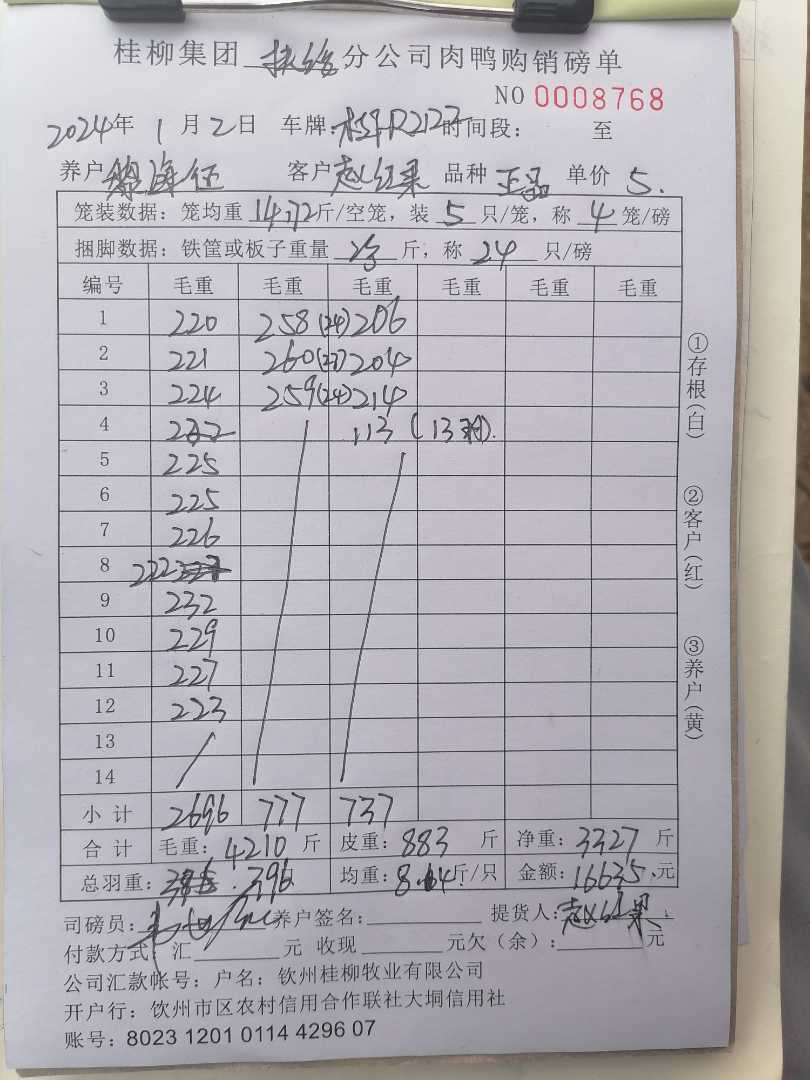 桂柳集团 分公司肉鸭购销磅单
NO 0008768
2024年 1月2日 车牌: R2122 时间段: 至
养户 海 客户 赵红果 品种 正品 单价 5.
笼装数据: 笼均重 14.72斤/空笼, 装 5 只/笼, 称 4 笼/磅
捆脚数据: 铁筐或板子重量 斤, 称 24 只/磅
编号 毛重 毛重 毛重 毛重 毛重 毛重
1 220 258(24) 206
2 221 260 204
3 224 259(24) 214
4 222 113 (13只).
5 225
6 225
7 226
8 222
9 232
10 229
11 227
12 223
13
14
小计 2696 777 737
合计 毛重: 4210 斤 皮重: 883 斤 净重: 3327 斤
总羽重: 396 均重: 8.4斤/只 金额: 16635.元
司磅员: 养户签名: 提货人: 赵红果
付款方式: 汇 元 收现 元欠(余): 元
公司汇款帐号: 户名: 钦州桂柳牧业有限公司
开户行: 钦州市区农村信用合作联社大垌信用社
账号: 8023 1201 0114 4296 07
①存根(白) ②客户(红) ③养户(黄)